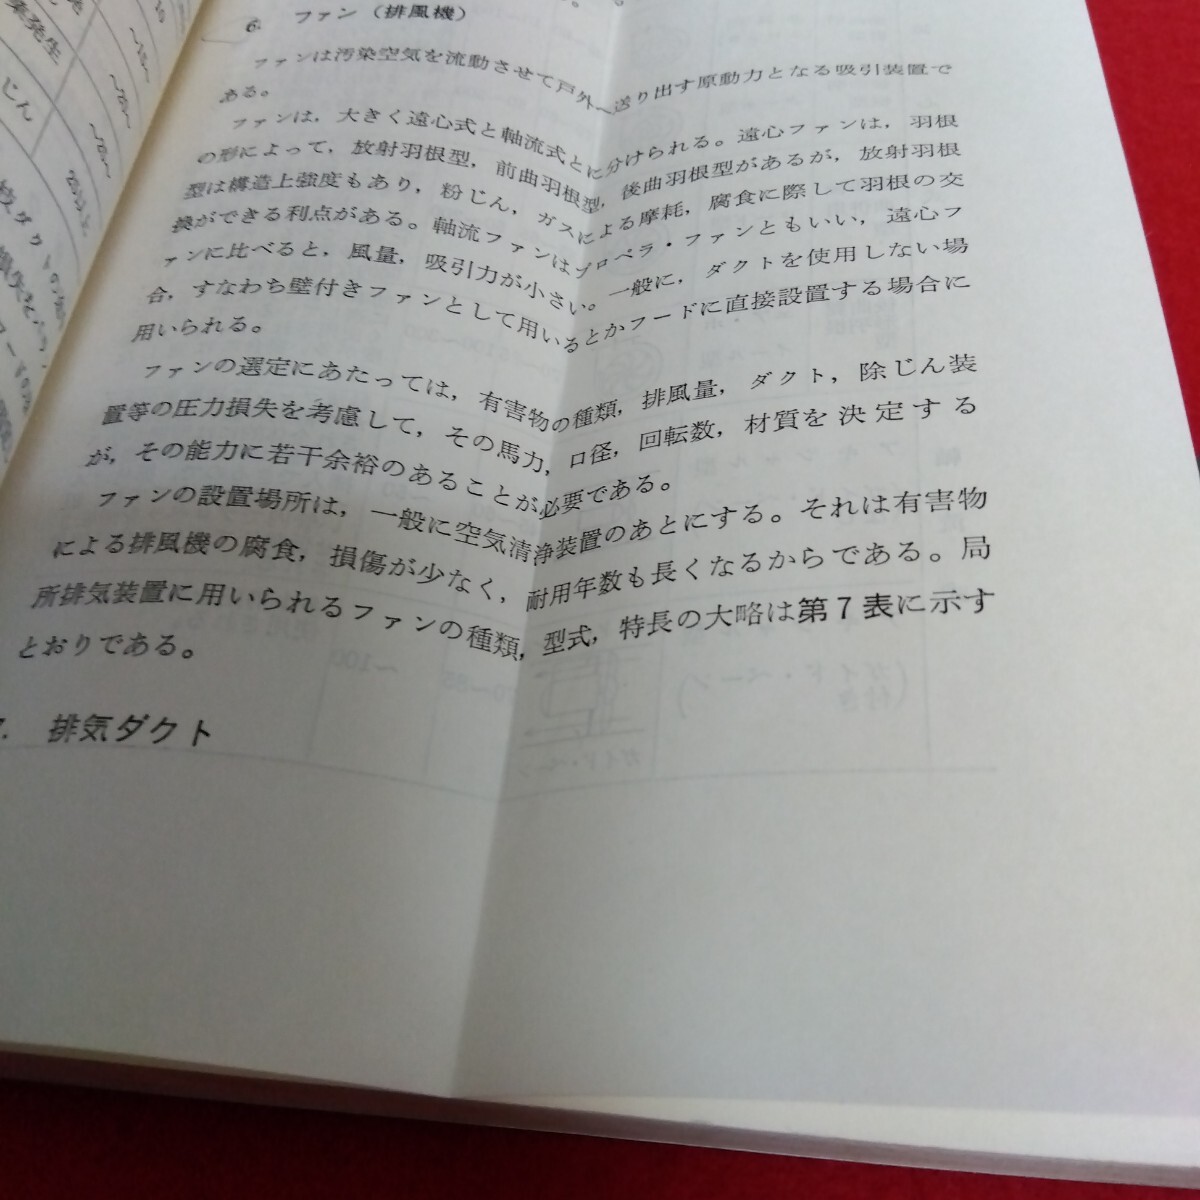 6. ファン（排風機）
ファンは汚染空気を流動させて戸外へ送り出す原動力となる吸引装置で
ある。
ファンは，大きく遠心式と軸流式とに分けられる。遠心ファンは，羽根
の形によって，放射羽根型，前曲羽根型，後曲羽根型があるが，放射羽根
型は構造上強度もあり，粉じん，ガスによる摩耗，腐食に際して羽根の交
換ができる利点がある。軸流ファンはプロペラ・ファンともいい，遠心フ
ァンに比べると，風量，吸引力が小さい。一般に，ダクトを使用しない場
合，すなわち壁付きファンとして用いるとかフードに直接設置する場合に
用いられる。
ファンの選定にあたっては，有害物の種類，排風量，ダクト，除じん装
置等の圧力損失を考慮して，その馬力，口径，回転数，材質を決定する
が，その能力に若干余裕のあることが必要である。
ファンの設置場所は，一般に空気清浄装置のあとにする。それは有害物
による排風機の腐食，損傷が少なく，耐用年数も長くなるからである。局
所排気装置に用いられるファンの種類，型式，特長の大略は第7表に示す
とおりである。
7. 排気ダクト
じん